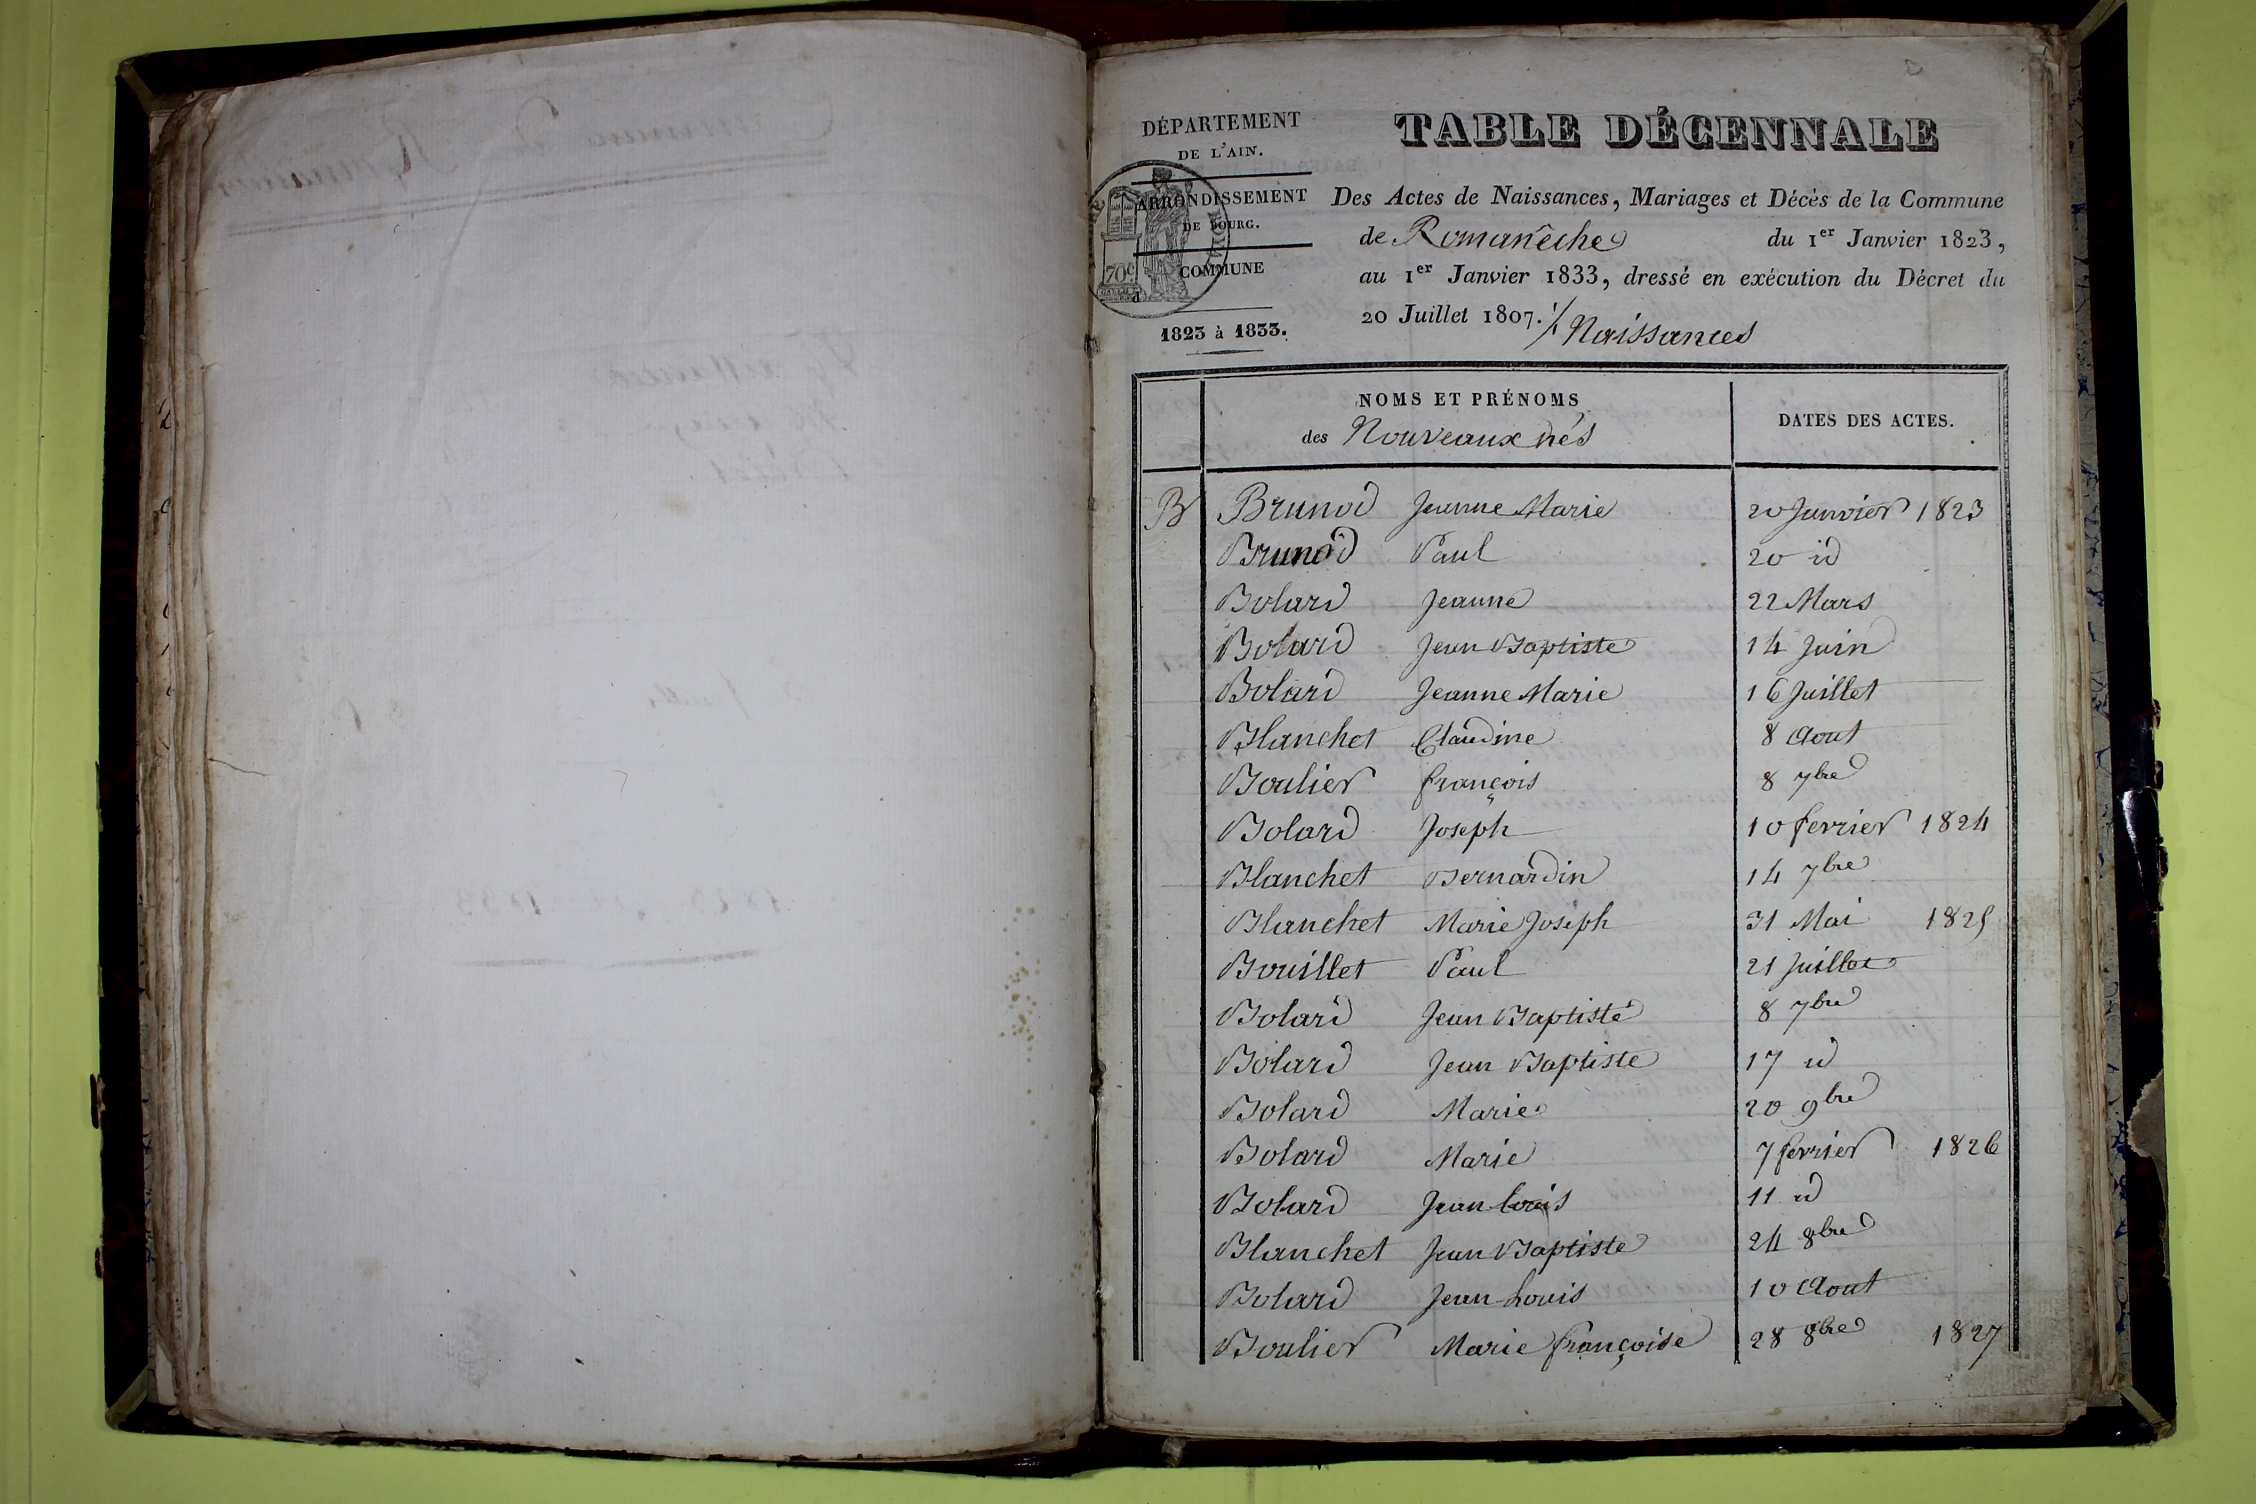 DÉPARTEMENT
DE L'AIN.
ARRONDISSEMENT
DE BOURG.
COMMUNE
d
70c
1823 à 1833.
TABLE DÉCENNALE
Des Actes de Naissances, Mariages et Décès de la Commune
de Romanêche du 1er Janvier 1823,
au 1er Janvier 1833, dressé en exécution du Décret du
20 Juillet 1807. Naissances
NOMS ET PRÉNOMS
des Nouveaux nés
DATES DES ACTES.
B Brunod Jeanne Marie 20 Janvier 1823
Brunod Paul 20 id
Bolard Jeanne 22 Mars
Bolard Jean Baptiste 14 Juin
Bolard Jeanne Marie 16 Juillet
Blanchet Claudine 8 Aout
Boulier françois 8 7bre
Bolard Joseph 10 fevrier 1824
Blanchet Bernardin 14 7bre
Blanchet Marie Joseph 31 Mai 1825
Bouillet Paul 21 Juillet
Bolard Jean Baptiste 8 7bre
Bolard Jean Baptiste 17 id
Bolard Marie 20 9bre
Bolard Marie 7 fevrier 1826
Bolard Jean Louis 11 id
Blanchet Jean Baptiste 24 8bre
Bolard Jean Louis 10 Aout
Boulier Marie françoise 28 8bre 1827